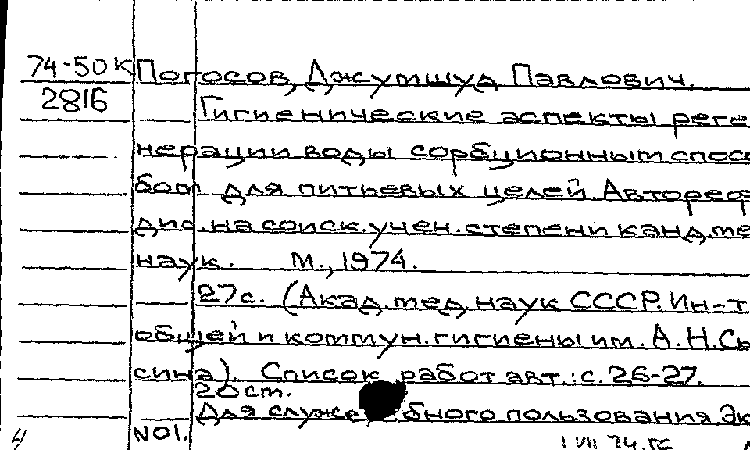 74-50К Погосов, Джумшуд Павлович.
2816 Гигиенические аспекты реге
нерации воды сорбционным спосо
бом для питьевых целей Автореф
дис. на соиск. учен. степени канд. ме
наук. М., 1974.
27с. (Акад. мед. наук СССР. Ин-т
общей и коммун. гигиены им. А.Н. Сы
сина). Список работ авт.: с. 26-27.
20 ст.
Для служебного пользования. Эк
№1.